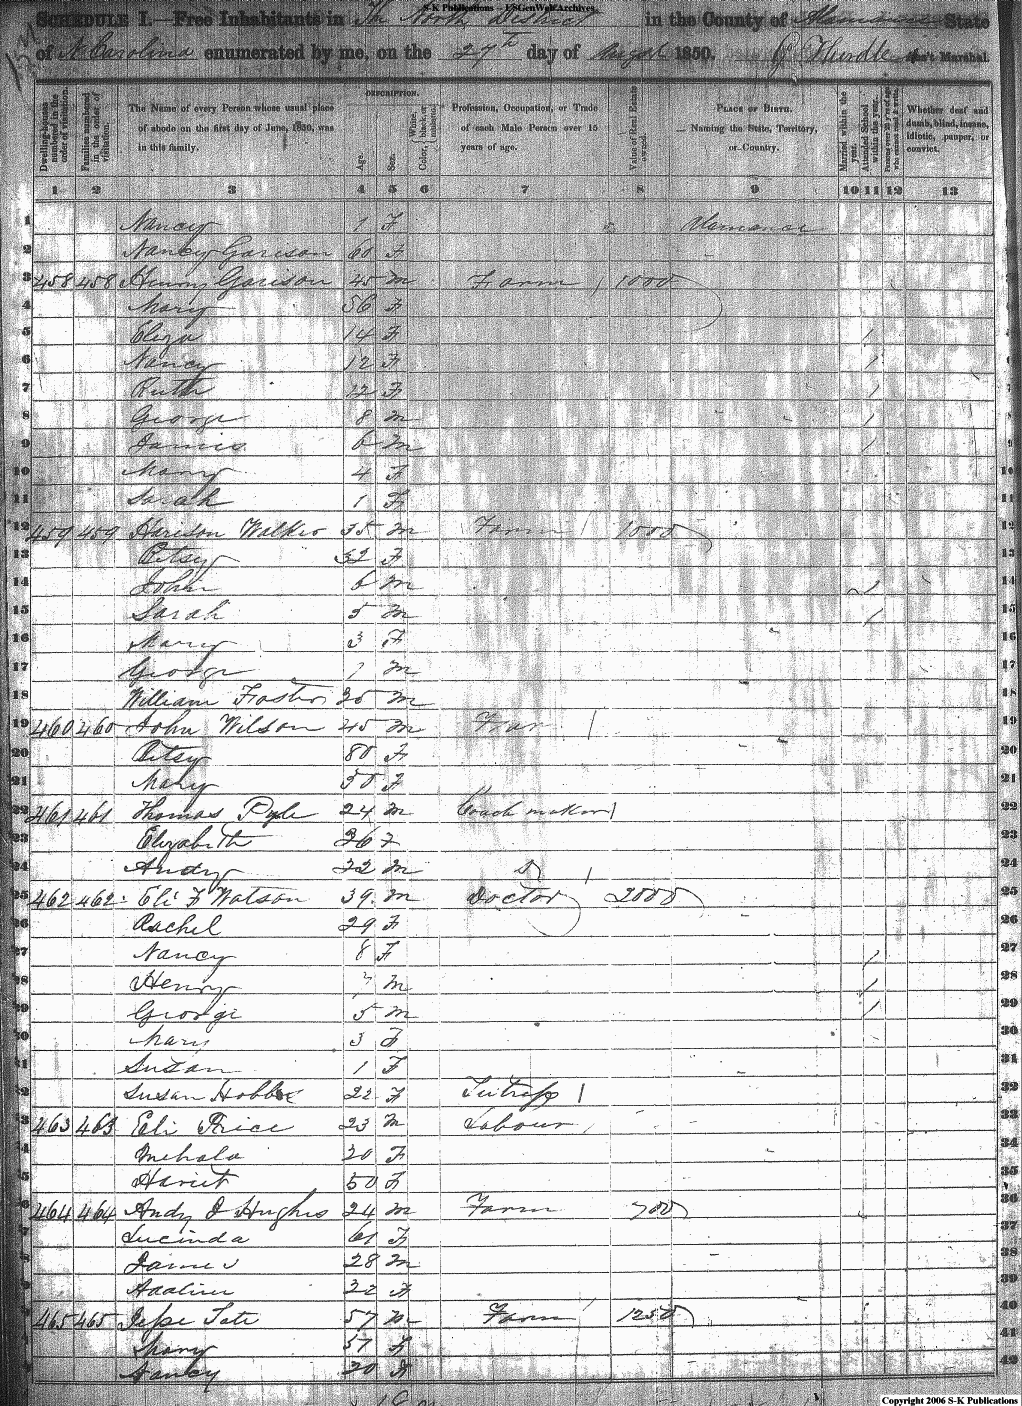 S-K Publications - USGenWeb Archives
SCHEDULE I.—Free Inhabitants in The North District in the County of Alamance State
of N Carolina enumerated by me, on the 27th day of August 1850. J Hurdle Ass't Marshal.
Dwelling-houses numbered in the order of visitation.
Families numbered in the order of visitation.
The Name of every Person whose usual place of abode on the first day of June, 1850, was in this family.
DESCRIPTION.
Age.
Sex.
Color, White, black, or mulatto.
Profession, Occupation, or Trade of each Male Person over 15 years of age.
Value of Real Estate owned.
PLACE OF BIRTH. Naming the State, Territory, or Country.
Married within the year.
Attended School within the year.
Persons over 20 y'rs of age who cannot read & write.
Whether deaf and dumb, blind, insane, idiotic, pauper, or convict.
1 2 3 4 5 6 7 8 9 10 11 12 13
1 Nancy 1 F Alamance
2 Nancy Garison 60 F
3 458 458 Henry Garison 45 m Farm 1000
4 Mary 36 F
5 Eliza 14 F 1
6 Nancy 12 F 1
7 Ruth 12 F 1
8 George 8 m 1
9 James 6 m 1
10 Mary 4 F
11 Sarah 1 F
12 459 459 Harison Walker 35 m Farm 1000
13 Betsy 32 F
14 John 6 m 1
15 Sarah 5 m 1
16 Mary 3 F
17 George 1 m
18 William Foster 20 m
19 460 460 John Wilson 45 m
20 Betsy 80 F
21 Mary 50 F
22 461 461 Thomas Pyle 24 m Coach maker
23 Elizabeth 26 F
24 Andy 22 m Do
25 462 462 Eli F Watson 39 m Doctor 2000
26 Rachel 29 F
27 Nancy 8 F 1
28 Henry 7 m 1
29 George 5 m 1
30 Mary 3 F
31 Susan 1 F
32 Susan Hobbs 22 F
33 463 463 Eli Price 23 m Labour
34 Mehala 20 F
35 Hariet 50 F
36 464 464 Andy J Hughes 24 m Farm 700
37 Lucinda 61 F
38 James 28 m
39 Adaline 22 F
40 465 465 Jesse Tate 57 m Farm 1250
41 Mary 57 F
42 Nancy 20 F
Copyright 2006 S-K Publications